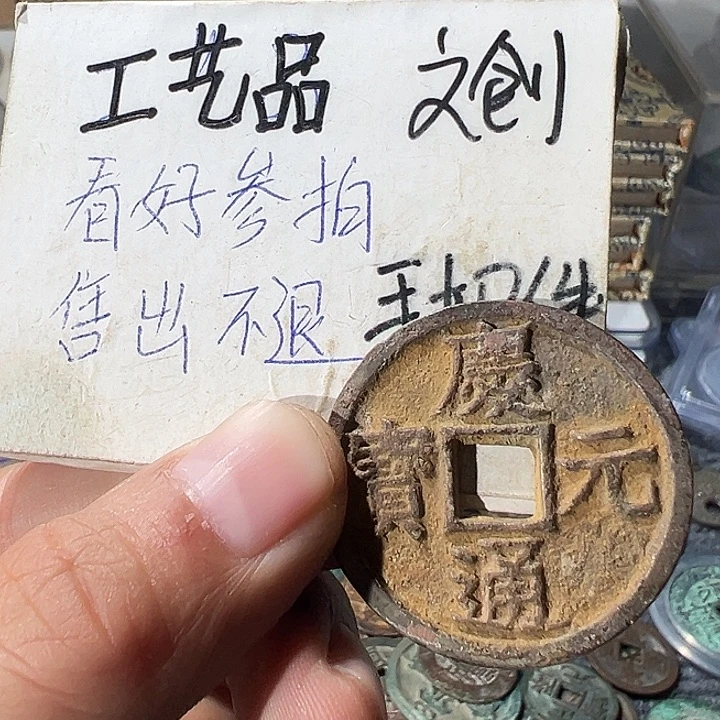 工艺品 文创
看好参拍
售出不退
慶元通寳